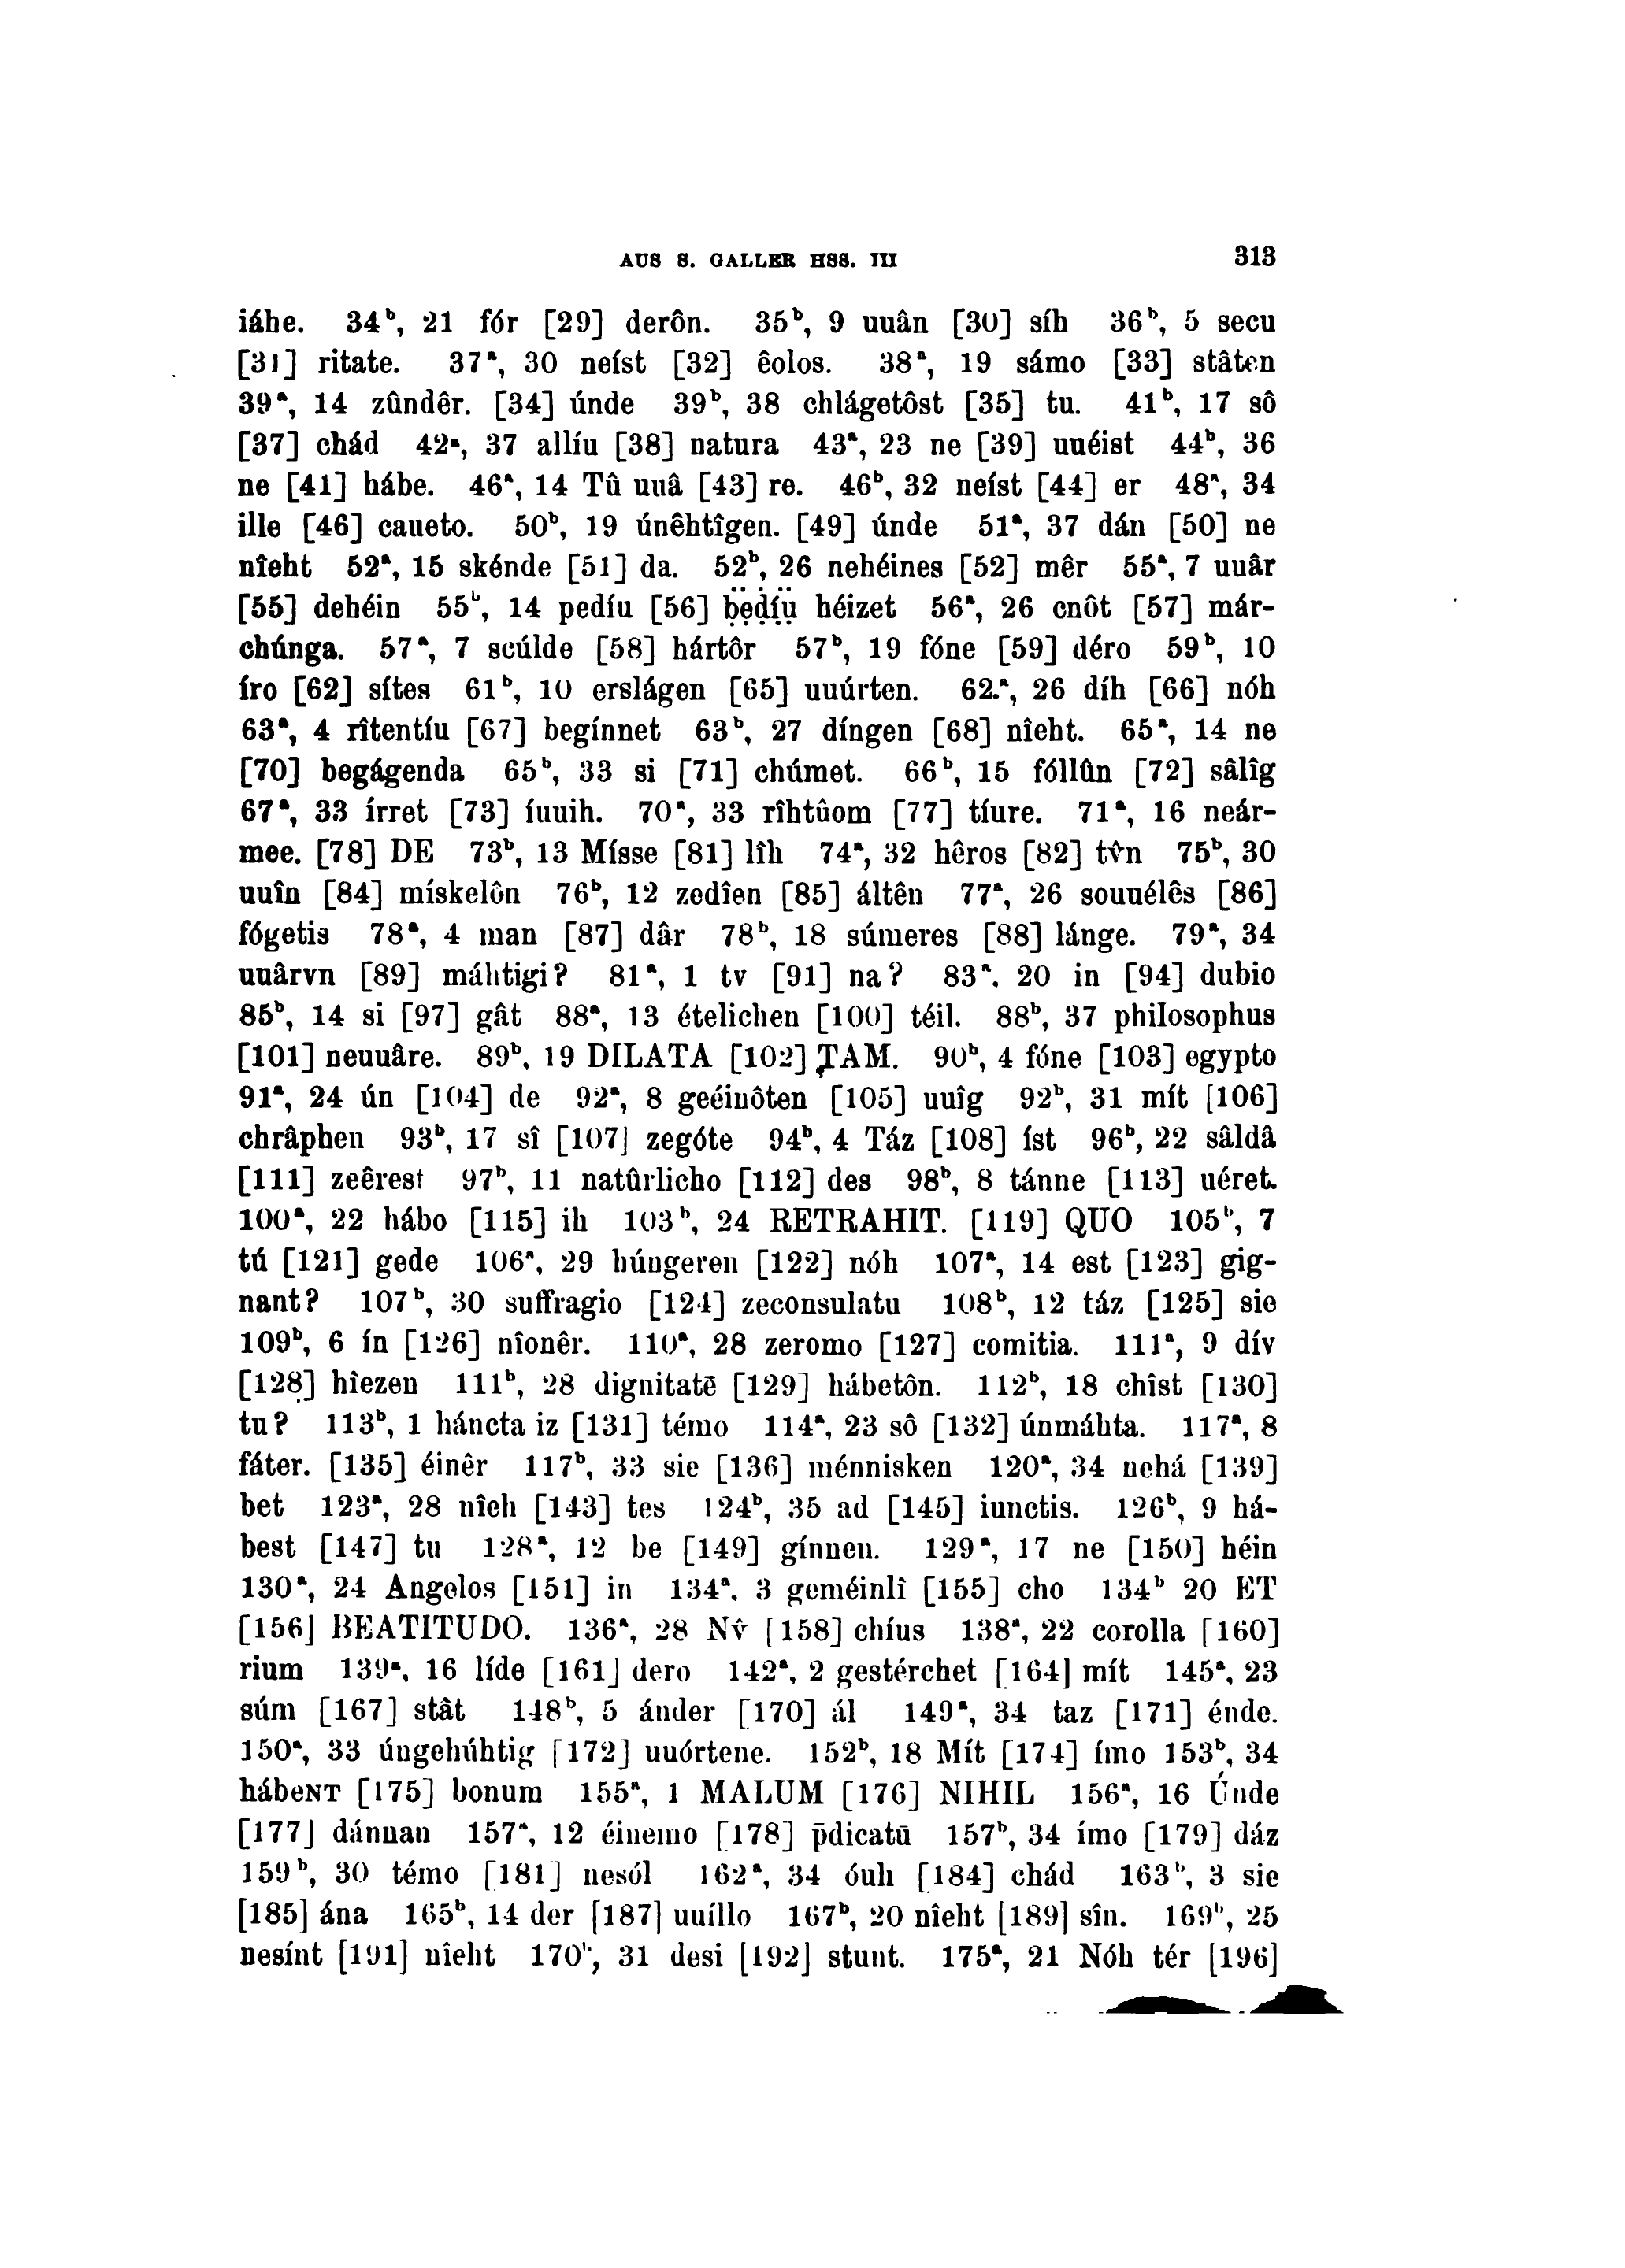 AUS S. GALLER HSS. III 313
iáhe. 34ᵇ, 21 fór [29] derôn. 35ᵇ, 9 uuân [30] síh 36ᵇ, 5 secu
[31] ritate. 37ᵃ, 30 neíst [32] êolos. 38ᵃ, 19 sámo [33] stâten
39ᵃ, 14 zûndêr. [34] únde 39ᵇ, 38 chlágetôst [35] tu. 41ᵇ, 17 sô
[37] chád 42ᵃ, 37 allíu [38] natura 43ᵃ, 23 ne [39] uuéist 44ᵇ, 36
ne [41] hábe. 46ᵃ, 14 Tû uuâ [43] re. 46ᵇ, 32 neíst [44] er 48ᵃ, 34
ille [46] caueto. 50ᵇ, 19 únêhtîgen. [49] únde 51ᵃ, 37 dán [50] ne
nîeht 52ᵃ, 15 skénde [51] da. 52ᵇ, 26 nehéines [52] mêr 55ᵃ, 7 uuâr
[55] dehéin 55ᵇ, 14 pedíu [56] ḅẹḍíụ héizet 56ᵃ, 26 cnôt [57] már-
chúnga. 57ᵃ, 7 scúlde [58] hártôr 57ᵇ, 19 fóne [59] déro 59ᵇ, 10
íro [62] sítes 61ᵇ, 10 erslágen [65] uuúrten. 62.ᵃ, 26 díh [66] nóh
63ᵃ, 4 rîtentíu [67] begínnet 63ᵇ, 27 díngen [68] nîeht. 65ᵃ, 14 ne
[70] begágenda 65ᵇ, 33 si [71] chúmet. 66ᵇ, 15 fóllûn [72] sâlîg
67ᵃ, 33 írret [73] íuuih. 70ᵃ, 33 rîhtûom [77] tíure. 71ᵃ, 16 neár-
mee. [78] DE 73ᵇ, 13 Mísse [81] lîh 74ᵃ, 32 hêros [82] tv̂n 75ᵇ, 30
uuîn [84] mískelôn 76ᵇ, 12 zedîen [85] áltên 77ᵃ, 26 souuélês [86]
fógetis 78ᵃ, 4 man [87] dâr 78ᵇ, 18 súmeres [88] lánge. 79ᵃ, 34
uuârvn [89] máhtigi? 81ᵃ, 1 tv [91] na? 83ᵃ. 20 in [94] dubio
85ᵇ, 14 si [97] gât 88ᵃ, 13 ételichen [100] téil. 88ᵇ, 37 philosophus
[101] neuuâre. 89ᵇ, 19 DILATA [102] ṬAM. 90ᵇ, 4 fóne [103] egypto
91ᵃ, 24 ún [104] de 92ᵃ, 8 geéinôten [105] uuîg 92ᵇ, 31 mít [106]
chrâphen 93ᵇ, 17 sî [107] zegóte 94ᵇ, 4 Táz [108] íst 96ᵇ, 22 sâldâ
[111] zeêrest 97ᵇ, 11 natûrlicho [112] des 98ᵇ, 8 tánne [113] uéret.
100ᵃ, 22 hábo [115] ih 103ᵇ, 24 RETRAHIT. [119] QUO 105ᵇ, 7
tú [121] gede 106ᵃ, 29 húngeren [122] nóh 107ᵃ, 14 est [123] gig-
nant? 107ᵇ, 30 suffragio [124] zeconsulatu 108ᵇ, 12 táz [125] sie
109ᵇ, 6 ín [126] nîonêr. 110ᵃ, 28 zeromo [127] comitia. 111ᵃ, 9 dív
[128] hîezen 111ᵇ, 28 dignitatē [129] hábetôn. 112ᵇ, 18 chîst [130]
tu? 113ᵇ, 1 háncta iz [131] témo 114ᵃ, 23 sô [132] únmáhta. 117ᵃ, 8
fáter. [135] éinêr 117ᵇ, 33 sie [136] ménnisken 120ᵃ, 34 nehá [139]
bet 123ᵃ, 28 nîeh [143] tes 124ᵇ, 35 ad [145] iunctis. 126ᵇ, 9 há-
best [147] tu 128ᵃ, 12 be [149] gínnen. 129ᵃ, 17 ne [150] héin
130ᵃ, 24 Angelos [151] in 134ᵃ. 3 geméinlî [155] cho 134ᵇ 20 ET
[156] BEATITUDO. 136ᵃ, 28 Nv̂ [158] chíus 138ᵃ, 22 corolla [160]
rium 139ᵃ, 16 líde [161] dero 142ᵃ, 2 gestérchet [164] mít 145ᵃ, 23
súm [167] stât 148ᵇ, 5 ánder [170] ál 149ᵃ, 34 taz [171] énde.
150ᵃ, 33 úngehúhtig [172] uuórtene. 152ᵇ, 18 Mít [174] ímo 153ᵇ, 34
hábeNT [175] bonum 155ᵃ, 1 MALUM [176] NIHIL 156ᵃ, 16 Únde
[177] dánnan 157ᵃ, 12 éinemo [178] p̄dicatū 157ᵇ, 34 ímo [179] dáz
159ᵇ, 30 témo [181] nesól 162ᵃ, 34 óuh [184] chád 163ᵇ, 3 sie
[185] ána 165ᵇ, 14 der [187] uuíllo 167ᵇ, 20 nîeht [189] sîn. 169ᵇ, 25
nesínt [191] nîeht 170ᵇ, 31 desi [192] stunt. 175ᵃ, 21 Nóh tér [196]